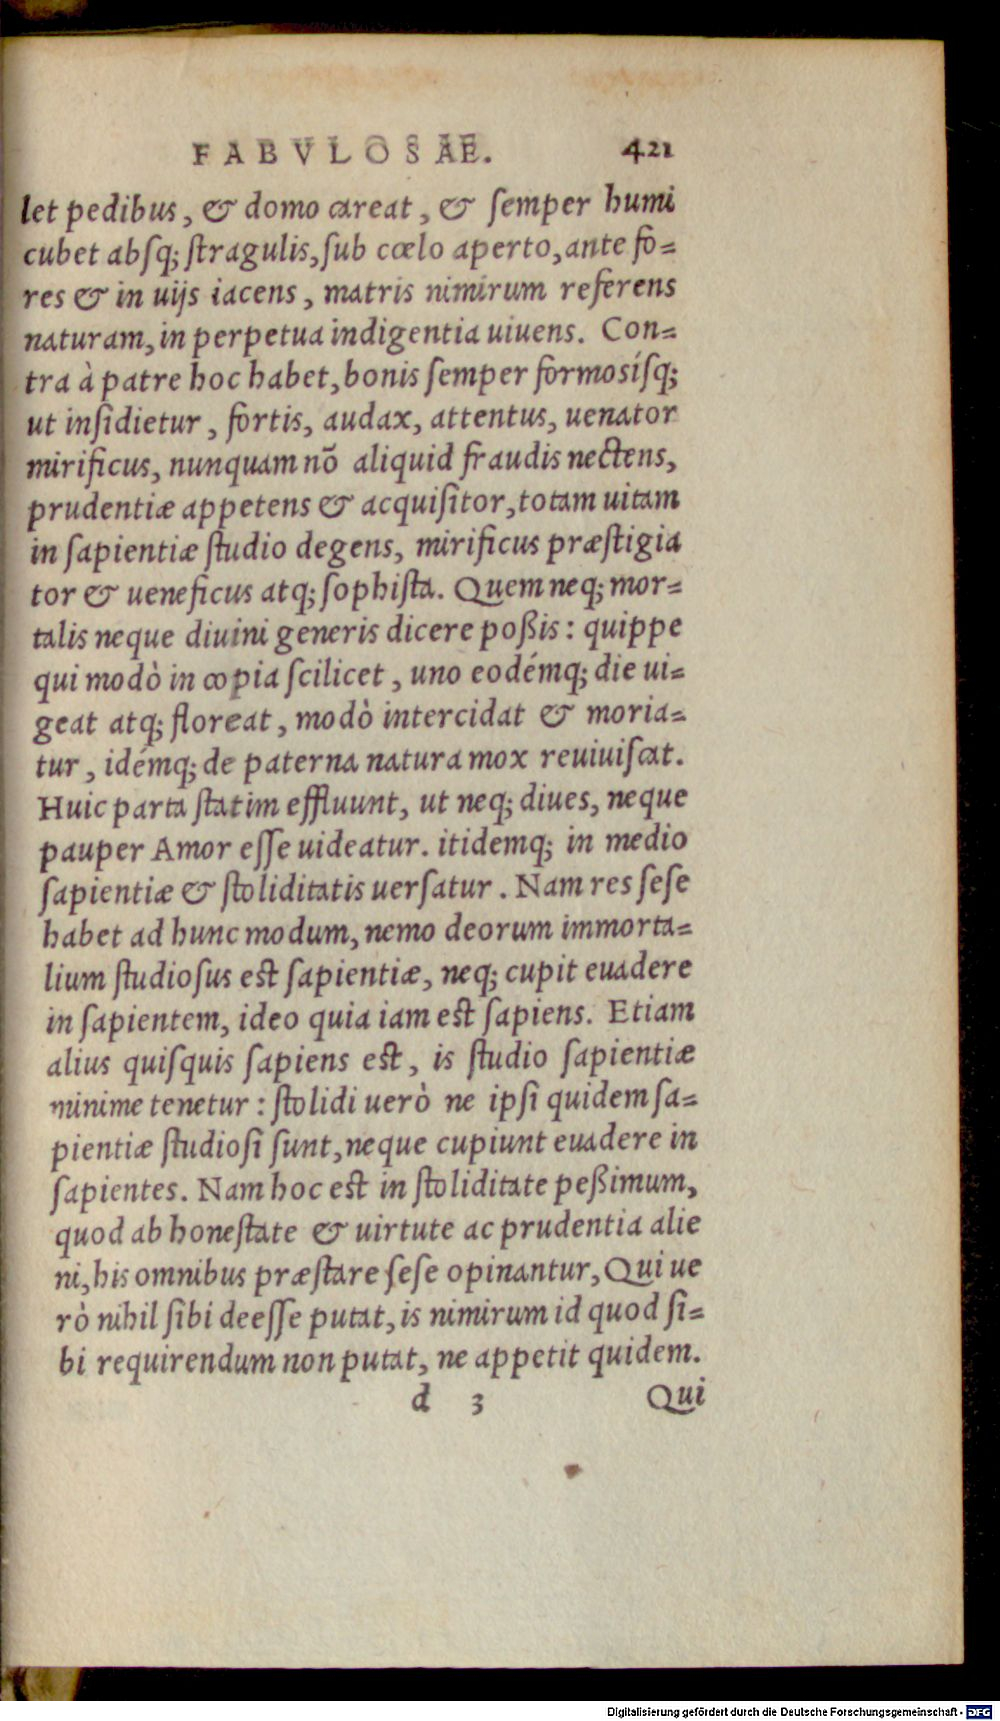 FABVLOSAE. 421
let pedibus, & domo careat, & ſemper humi
cubet abſq; ſtragulis, ſub cœlo aperto, ante fo=
res & in uijs iacens, matris nimirum referens
naturam, in perpetua indigentia uiuens. Con=
tra à patre hoc habet, bonis ſemper formosíſq;
ut inſidietur, fortis, audax, attentus, uenator
mirificus, nunquam nõ aliquid fraudis nectens,
prudentiæ appetens & acquiſitor, totam uitam
in ſapientiæ ſtudio degens, mirificus præſtigia
tor & ueneficus atq; ſophiſta. Quem neq; mor=
talis neque diuini generis dicere poßis: quippe
qui modò in copia ſcilicet, uno eodémq; die ui=
geat atq; floreat, modò intercidat & moria=
tur, idémq; de paterna natura mox reuiuiſcat.
Huic parta ſtatim effluunt, ut neq; diues, neque
pauper Amor eſſe uideatur. itidemq; in medio
ſapientiæ & ſtoliditatis uerſatur. Nam res ſeſe
habet ad hunc modum, nemo deorum immorta=
lium ſtudioſus est ſapientiæ, neq; cupit euadere
in ſapientem, ideo quia iam est ſapiens. Etiam
alius quiſquis ſapiens est, is ſtudio ſapientiæ
minime tenetur: ſtolidi uerò ne ipſi quidem ſa=
pientiæ ſtudioſi ſunt, neque cupiunt euadere in
ſapientes. Nam hoc est in ſtoliditate peßimum,
quod ab honeſtate & uirtute ac prudentia alie
ni, his omnibus præſtare ſeſe opinantur, Qui ue
rò nihil ſibi deeſſe putat, is nimirum id quod ſi=
bi requirendum non putat, ne appetit quidem.
d 3 Qui
Digitalisierung gefördert durch die Deutsche Forschungsgemeinschaft - DFG